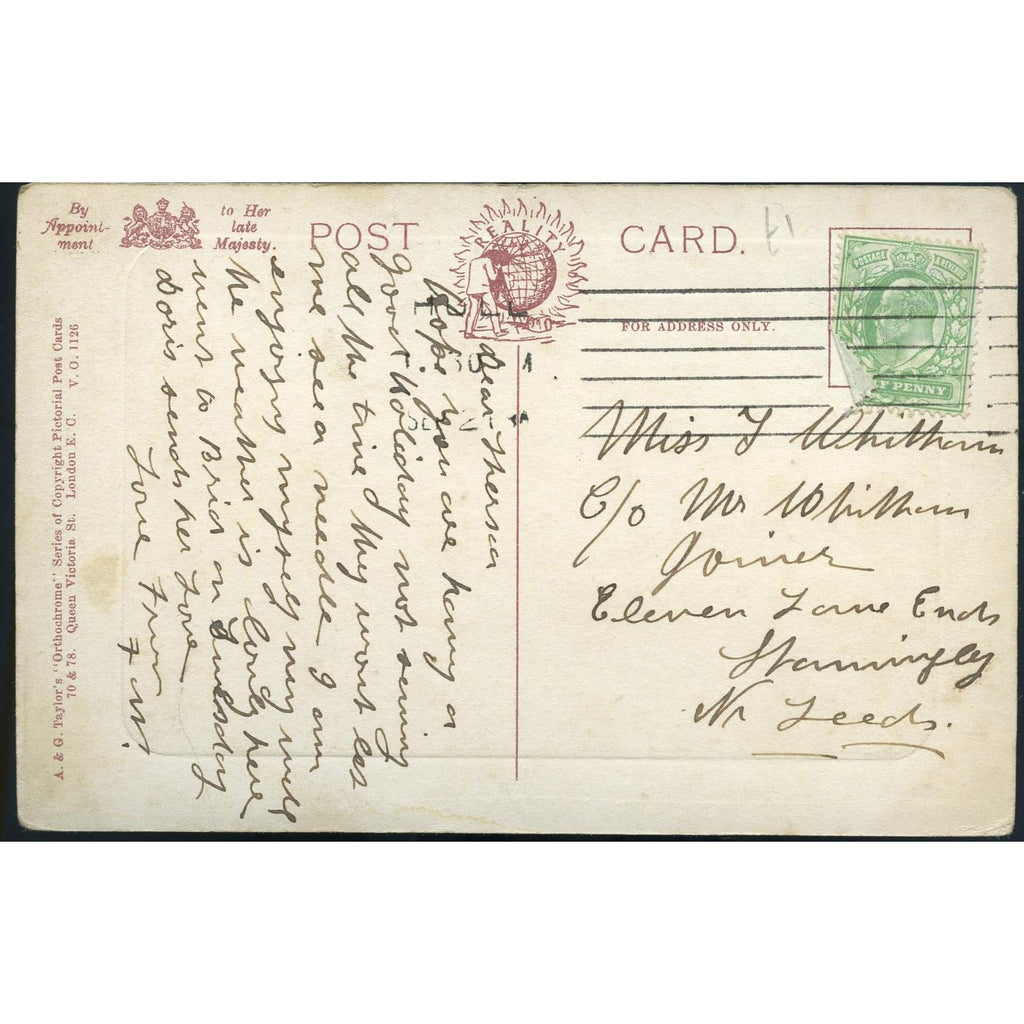 By
Appoint-
ment
to Her
late
Majesty.
POST CARD.
REALITY
FOR ADDRESS ONLY.
POSTAGE & REVENUE
F PENNY
HULL
A. & G. Taylor's "Orthochrome" Series of Copyright Pictorial Post Cards
70 & 78. Queen Victoria St. London E. C. V. O. 1126
Dear Thersea
Hope you are having a
good Holiday not seeing
all the time they wont let
me see a needle I am
enjoying myself very well
the weather is lovely here
went to Brid on Tuesday
Doris sends her love
Love from
F W.
Miss T Whitham
C/o Mr Whitham
Joiner
Eleven Lane Ends
Stanningley
Nr Leeds.